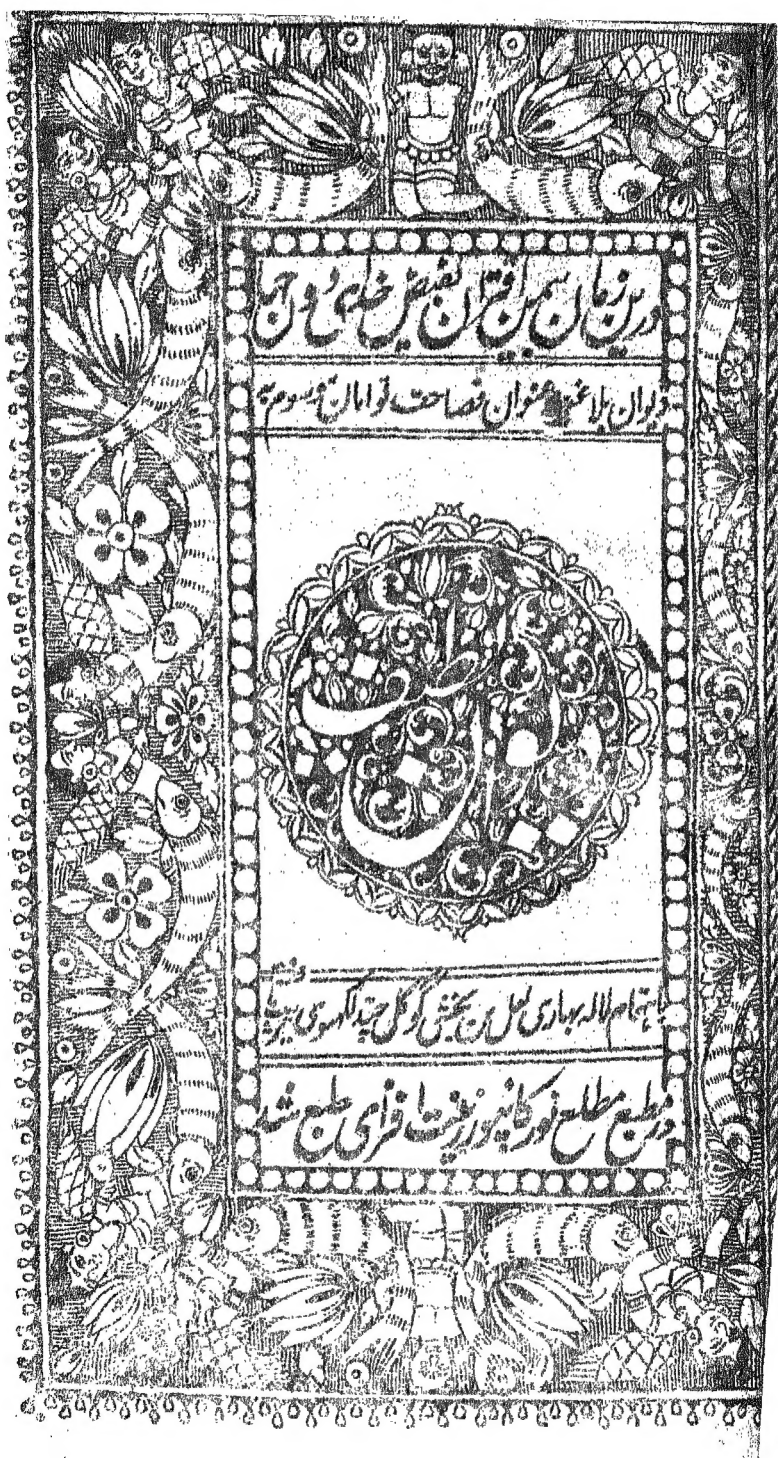 درین زمان یمن اقتران بفیض خدای دو جهان
دیوان بلاغت عنوان فصاحت توامان موسوم به
دیوان واصف
باهتمام لاله بهاری لعل بن بخشی گوکل چند لکهنوی
در مطبع مطلع نور کانپور زینت افزای طبع شد